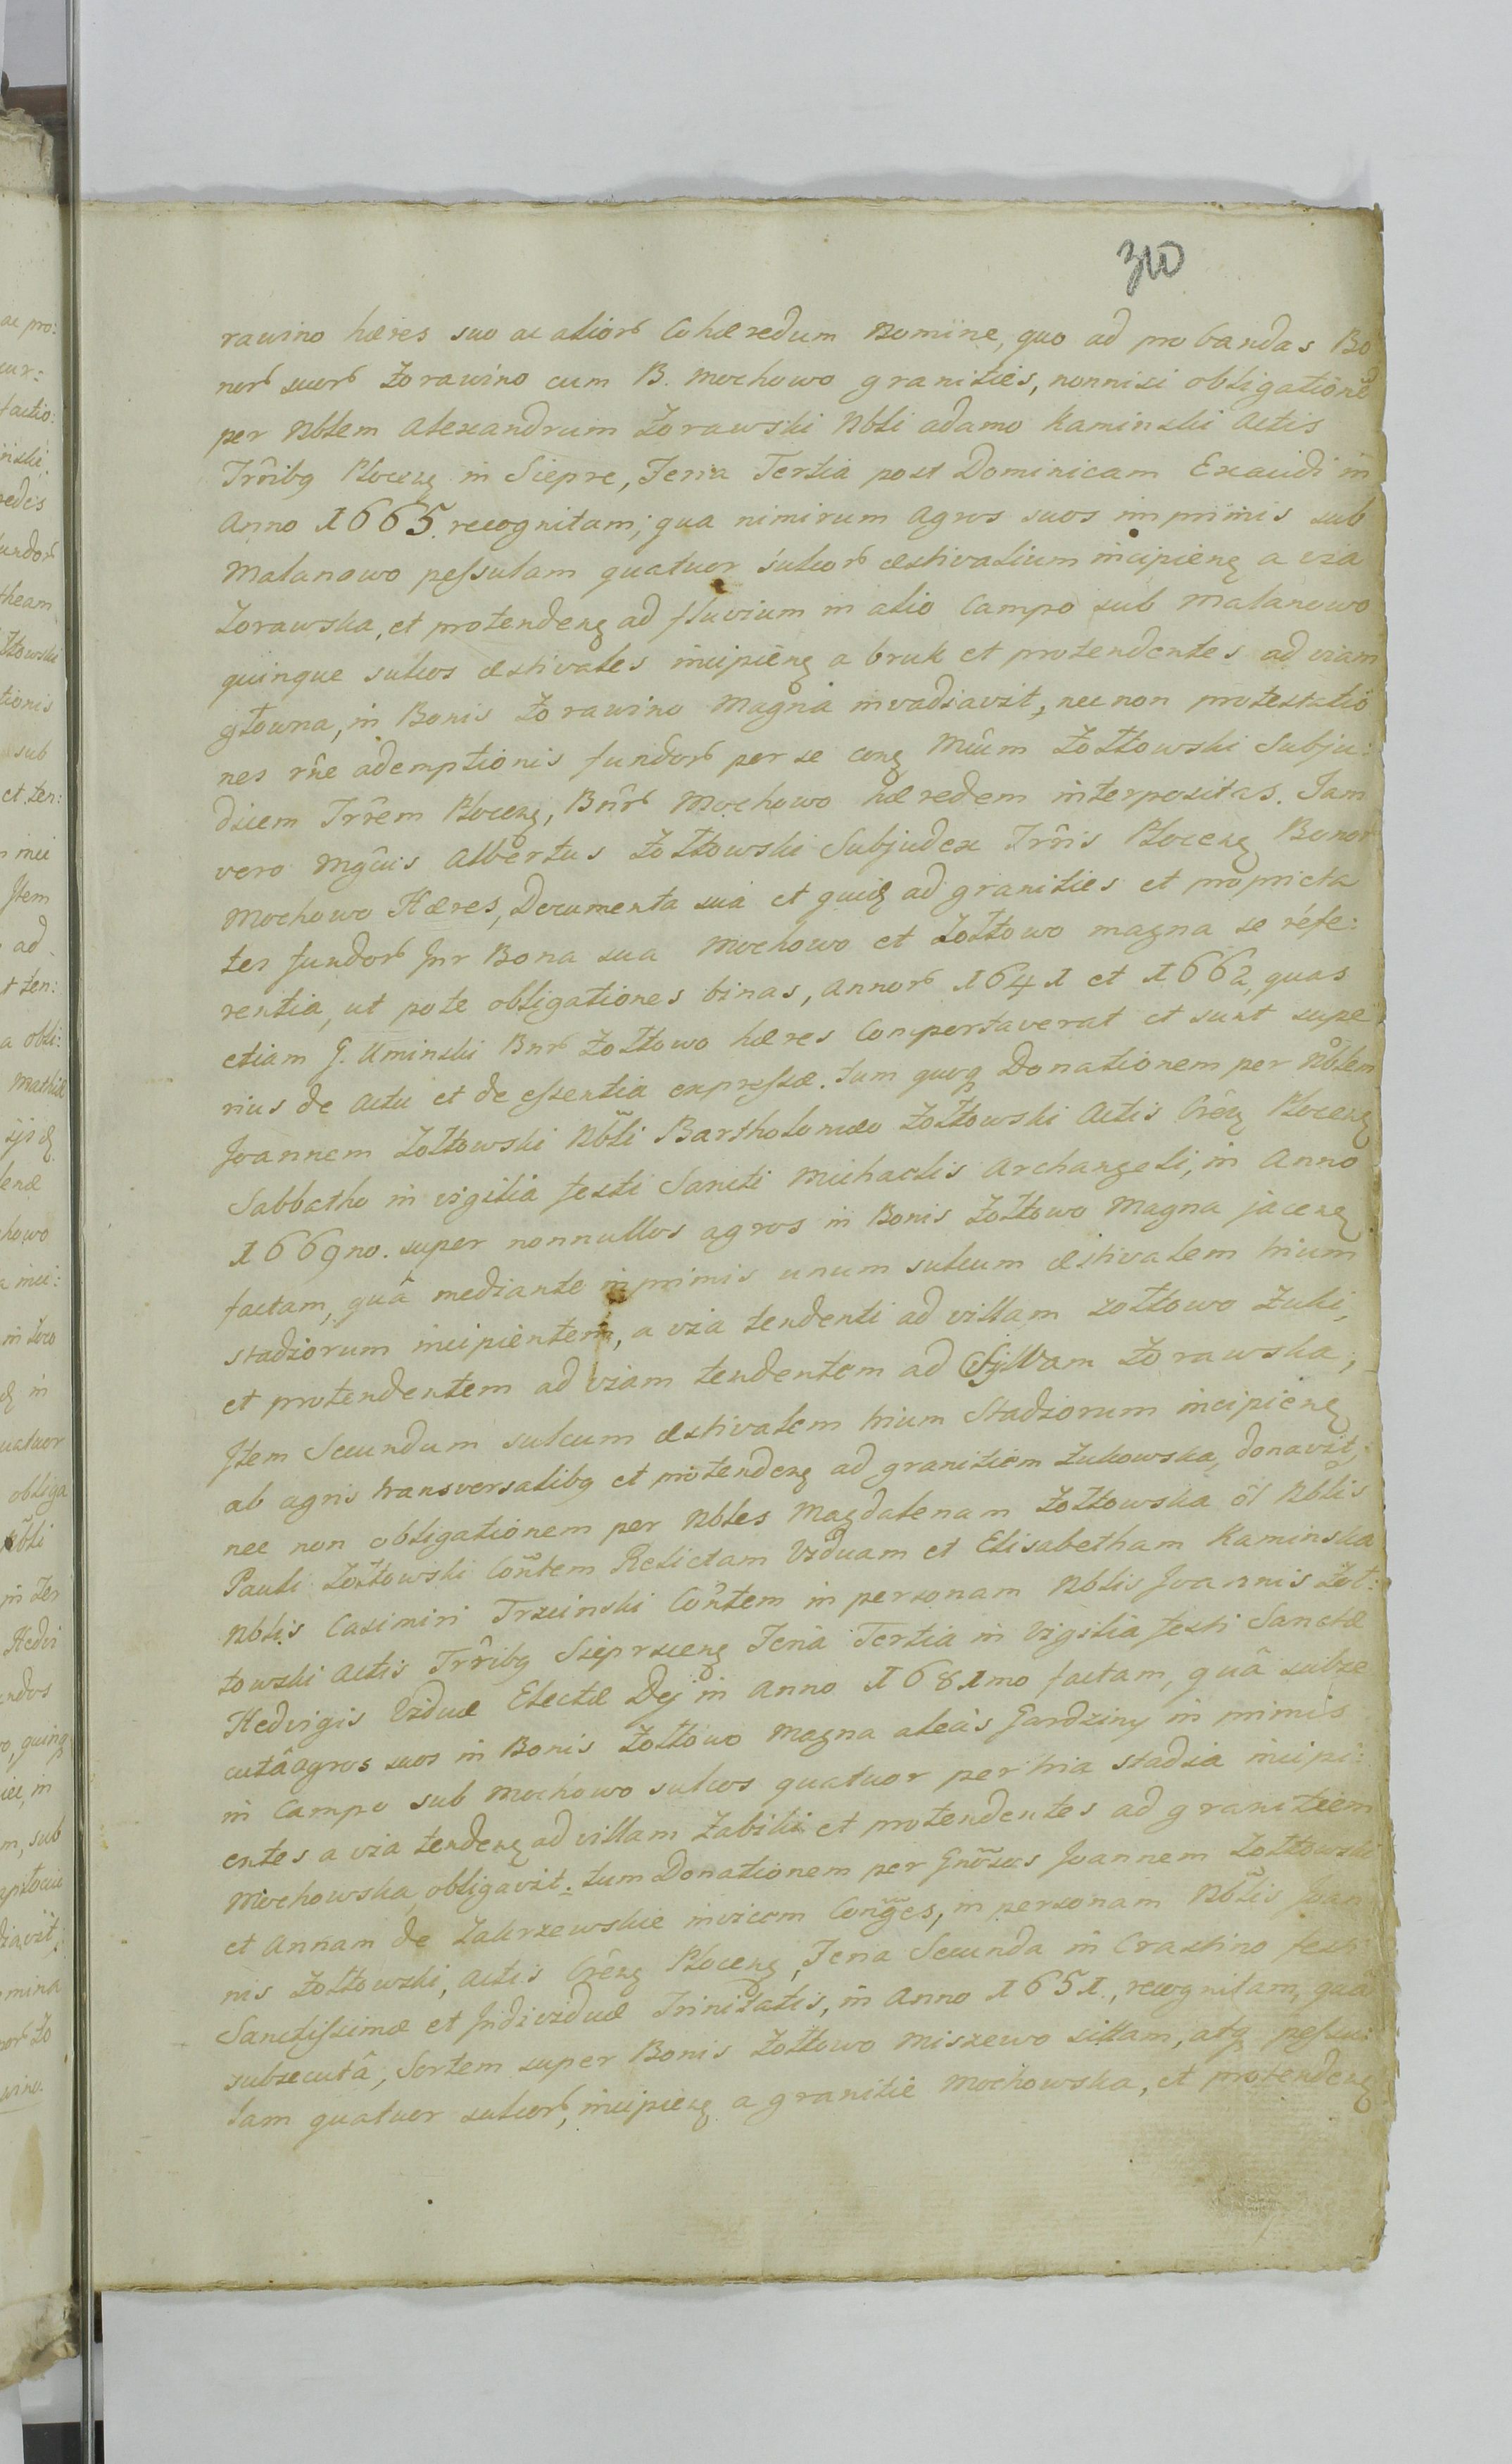 310
rawino hæres suo ac alior Cohæredum Nomine, quo ad probandas Bo
nor suor Żorawino cum B. Mochowo granities, nonnisi obligationē
per Nblem Alexandrum Żorawski Nbli Adamo Kaminski Actis
Trr̃ibq Plocenꝫ in Siepre, Feria Tertia post Dominicam Exaudi in
Anno 1665. recognitam; qua nimirum Agros suos imprimis sub
Malanowo pessulam quatuor sulcor æstivalium incipienꝫ a via
Żorawska, et protendenꝫ ad fluvium in alio Campo sub Malanowo
quinque sulcos æstivales incipienꝫ a bruk et protendentes ad viam
głowna, in Bonis Żorawino Magna invadiavit, nec non protestatio
nes rñe ademptionis fundor per se conꝫ Mũm Żółtowski Subju:
dicem Trr̃em Plocenꝫ, Bñr Mochowo hæredem interpositas. Jam
vero Mgũis Albertus Żołtowski Subjudex Trr̃is Plocenꝫ Bonor
Mochowo Hæres, Documenta sua et quidꝫ ad granities et proprieta
tes fundor Inr Bona sua Mochowo et Żołtowo magna se refe:
rentia, ut pote obligationes binas, Annor 1641 et 1662, quas
etiam G. Uminski Bnr Żołtowo hæres Comportaverat et sunt supe
rius de Actu et de essentia expressæ. tum quoq Donationem per Nblem
Joannem Żołtowski Nbli Bartholomæo Żołtowski Actis Crẽnꝫ Plocenꝫ
Sabbatho in vigilia festi Sancti Michaelis Archangeli, in Anno
1669no. super nonnullos agros in Bonis Żołtowo Magna jacenꝫ
factam, quâ mediante inprimis unum sulcum æstivalem trium
stadiorum incipientem, a via tendenti ad villam Żołtowo Żuki,
et protendentem ad viam tendentem ad Sylvam Żorawska;
Item Secundum sulcum æstivalem trium Stadiorum incipienꝫ
ab agris transversalibq et protendenꝫ ad granitiem Żukowska, donavit,
nec non obligationem per Nbles Magdalenam Żołtowska ol Nblis
Pauli Żołtowski Cor̃tem Relictam Viduam et Elisabetham Kaminska
Nblis Casimiri Trzcinski Cor̃tem in personam Nblis Joannis Żoł:
towski Actis Trr̃ibq Sieprscenꝫ Feria Tertia in Vigilia festi Sanctæ
Hedvigis Viduæ Electæ Dej in Anno 1681mo factam, quâ subse
cutâ agros suos in Bonis Żołtowo Magna aleas Gardziny in primis
in Campo sub Mochowo sulcos quatuor per tria stadia incipi:
entes a via tendenꝫ ad villam Żabiki et protendentes ad granitiem
Mochowska obligavit. tum Donationem per Gnõsus Joannem Żołtowski
et Annam de Zakrzewskie invicem Coñges, in personam Nblis Joan
nis Żołtowski, Actis Crẽnꝫ Plocenꝫ, Feria Secunda in Crastino festi
Sanctissimæ et Individuæ Trinitatis, in Anno 1651, recognitam, quâ
subsecutâ, Sortem super Bonis Żołtowo Miszewo sittam, atq pessu:
lam quatuor sulcor, incipienꝫ a granitie Mochowska, et protendenꝫ